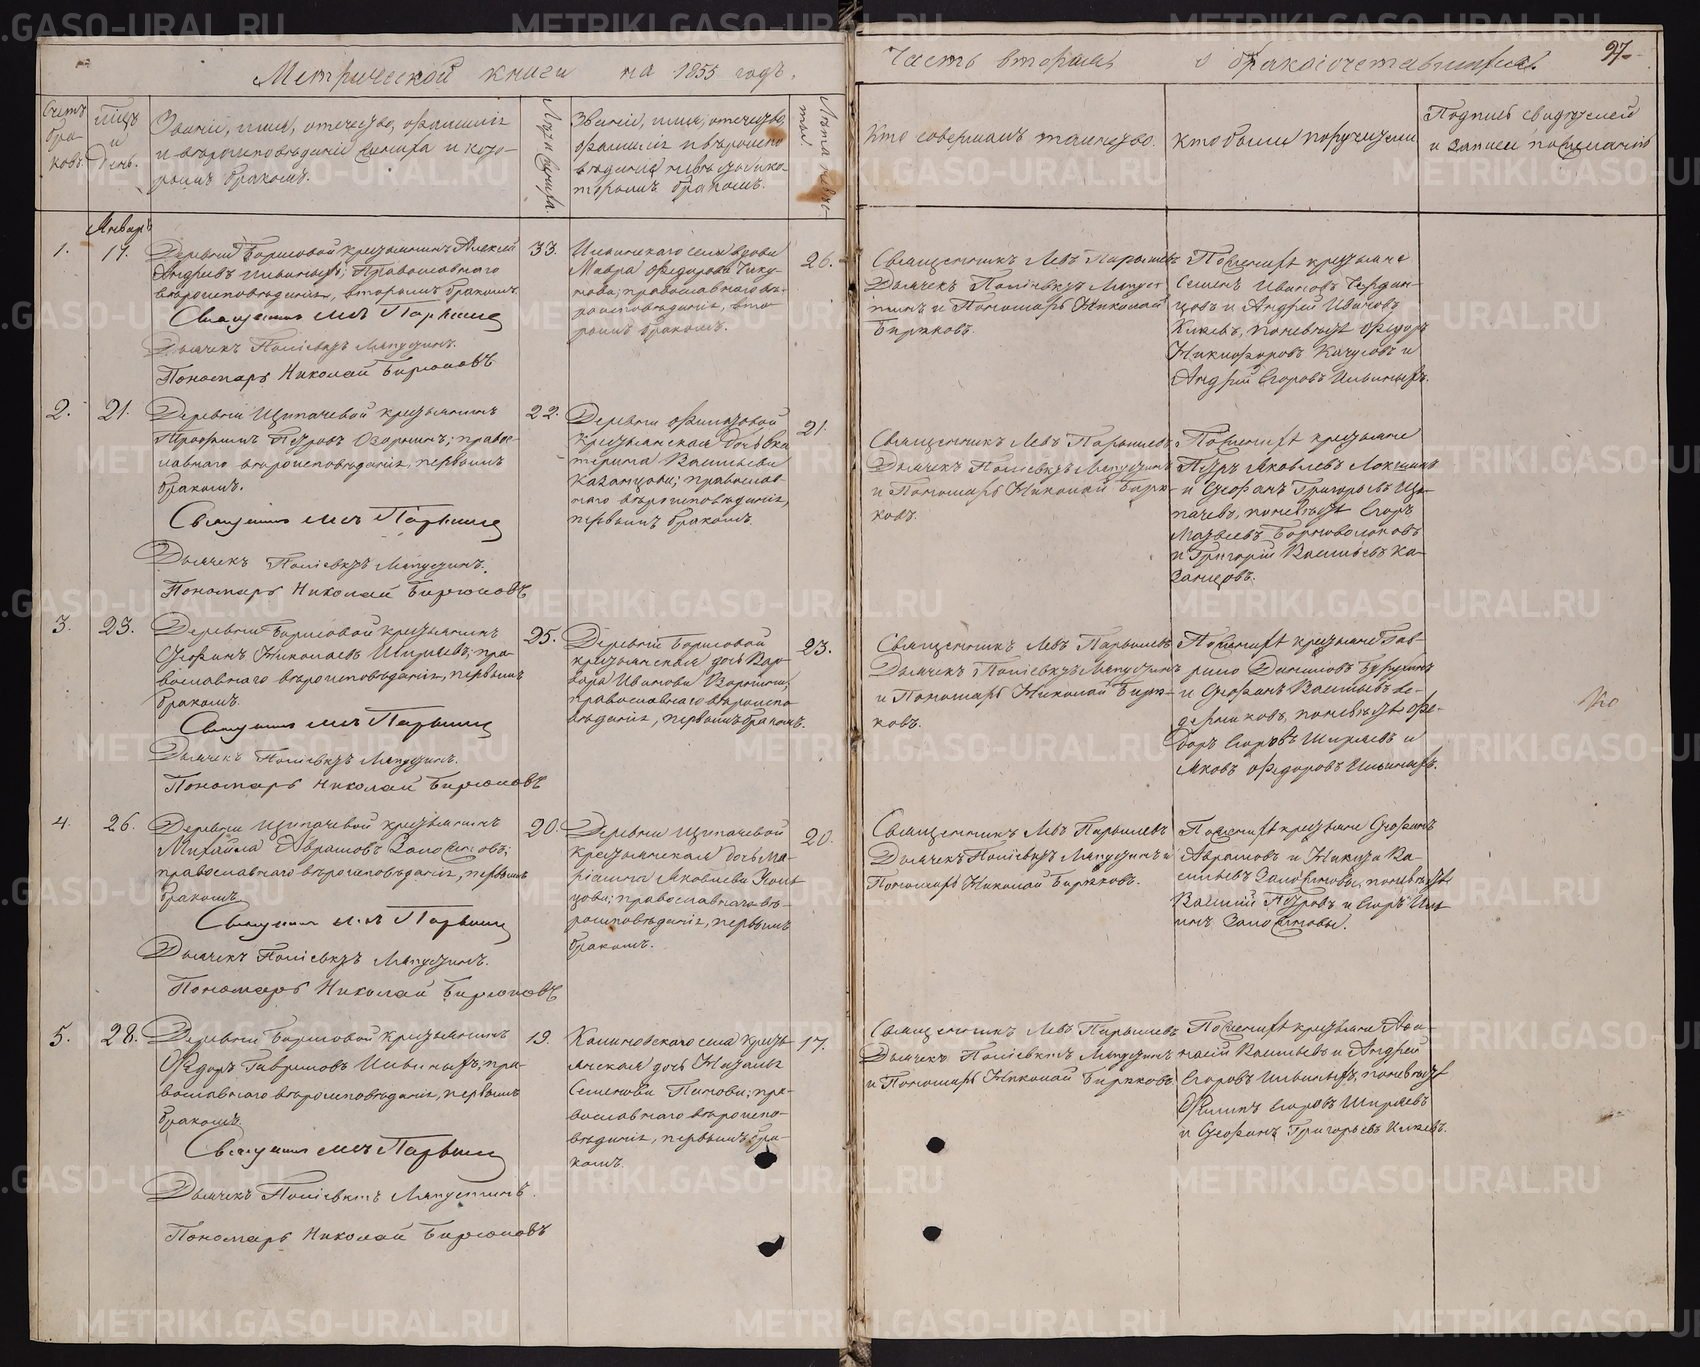 Метрической книги на 1855 годъ,
Часть вторая, о бракосочетавшихся.
27.
Счетъ бра-
ковъ.
Мѣсяцъ
и
день.
Званіе, имя, отечество, фамилія
и вѣроисповѣданіе жениха и кото-
рымъ бракомъ.
Лѣта жениха.
Званіе, имя, отечество,
фамилія и вѣроиспо-
вѣданіе невѣсты и ко-
торымъ бракомъ.
Лѣта невѣс-
ты.
Кто совершалъ таинство.
Кто были поручители
Подпись свидѣтелей
и записи по желанію
Январь
1.
17.
Деревни Борисовой крестьянинъ Алексей
Андреевъ Ильиныхъ; православнаго
вѣроисповѣданія, вторымъ бракомъ.
Священникъ Левъ Парышев
Дьячекъ Полиевктъ Ляпустинъ.
Пономарь Николай Бирюковъ
33.
Ильинскаго села вдова
Мавра Федорова Чику-
нова; православнаго вѣ-
роисповѣданія, вто-
рымъ бракомъ.
26.
Священникъ Левъ Парышевъ
Дьячекъ Полиевктъ Ляпуст
инъ и Пономарь Николай
Бирюковъ.
По женихѣ крестьяне
Семенъ Ивановъ
и Андрей Ивановъ
по невѣстѣ Федоръ
Никифоровъ Качусовъ и
Андрей Егоровъ Ильиныхъ.
2.
21.
Деревни Щипачевой крестьянинъ
Трофимъ Петровъ Озорнинъ; право-
славнаго вѣроисповѣданія, первымъ
бракомъ.
Священникъ Левъ Парышев
Дьячекъ Полиевктъ Ляпустинъ.
Пономарь Николай Бирюковъ
22.
Деревни Филатовой
крестьянская дочь Ека-
терина Васильева
Казанцова; православ-
наго вѣроисповѣданія,
первымъ бракомъ.
21.
Священникъ Левъ Парышевъ
Дьячекъ Полиевктъ Ляпустинъ
и Пономарь Николай Бирю-
ковъ.
По женихѣ крестьяне
Петръ Яковлевъ
и Стефанъ Григорьевъ Щи-
пачевъ, по невѣстѣ Егоръ
Матвеевъ Борноволоковъ
и Григорій Васильевъ Ка-
занцовъ.
3.
23.
Деревни Борисовой крестьянинъ
Стефанъ Николаевъ Ширяевъ, пра-
вославнаго вѣроисповѣданія, первымъ
бракомъ.
Священникъ Левъ Парышев
Дьячекъ Полиевктъ Ляпустинъ.
Пономарь Николай Бирюковъ
25.
Деревни Борисовой
крестьянская дочь Вар-
вара Иванова
православнаго вѣроиспо-
вѣданія, первымъ бракомъ.
23.
Священникъ Левъ Парышевъ
Дьячекъ Полиевктъ Ляпустинъ
и Пономарь Николай Бирю-
ковъ.
По женихѣ крестьяне Гав-
рило Даниловъ
и Стефанъ Васильевъ
по невѣстѣ Фе-
доръ Егоровъ Ширяевъ и
Яковъ Федоровъ Ильиныхъ.
4.
26.
Деревни Щипачевой крестьянинъ
Михайла Абрамовъ
православнаго вѣроисповѣданія, первымъ
бракомъ.
Священникъ Левъ Парышев
Дьячекъ Полиевктъ Ляпустинъ.
Пономарь Николай Бирюковъ
20.
Деревни Щипачевой
крестьянская дочь Ма-
Яковлева
православнаго вѣ-
роисповѣданія, первымъ
бракомъ.
20.
Священникъ Левъ Парышевъ
Дьячекъ Полиевктъ Ляпустинъ и
Пономарь Николай Бирюковъ.
По женихѣ крестьяне Стефанъ
Абрамовъ и Никита Ва-
сильевъ по невѣстѣ
Василій Петровъ и Егоръ
5.
28.
Деревни Борисовой крестьянинъ
Федоръ Гавриловъ Ильиныхъ, пра-
вославнаго вѣроисповѣданія, первымъ
бракомъ.
Священникъ Левъ Парышев
Дьячекъ Полиевктъ Ляпустинъ.
Пономарь Николай Бирюковъ
19.
Калиновскаго села кресть
янская дочь Наталья
Семенова Панова; пра-
вославнаго вѣроиспо-
вѣданія, первымъ бра-
комъ.
17.
Священникъ Левъ Парышевъ
Дьячекъ Полиевктъ Ляпустинъ
и Пономарь Николай Бирюковъ.
По женихѣ крестьяне Афа-
насій Васильевъ и Андрей
Егоровъ Ильиныхъ, по невѣстѣ
Филипъ Егоровъ Ширяевъ
и Стефанъ Григорьевъ
METRIKI.GASO-URAL.RU